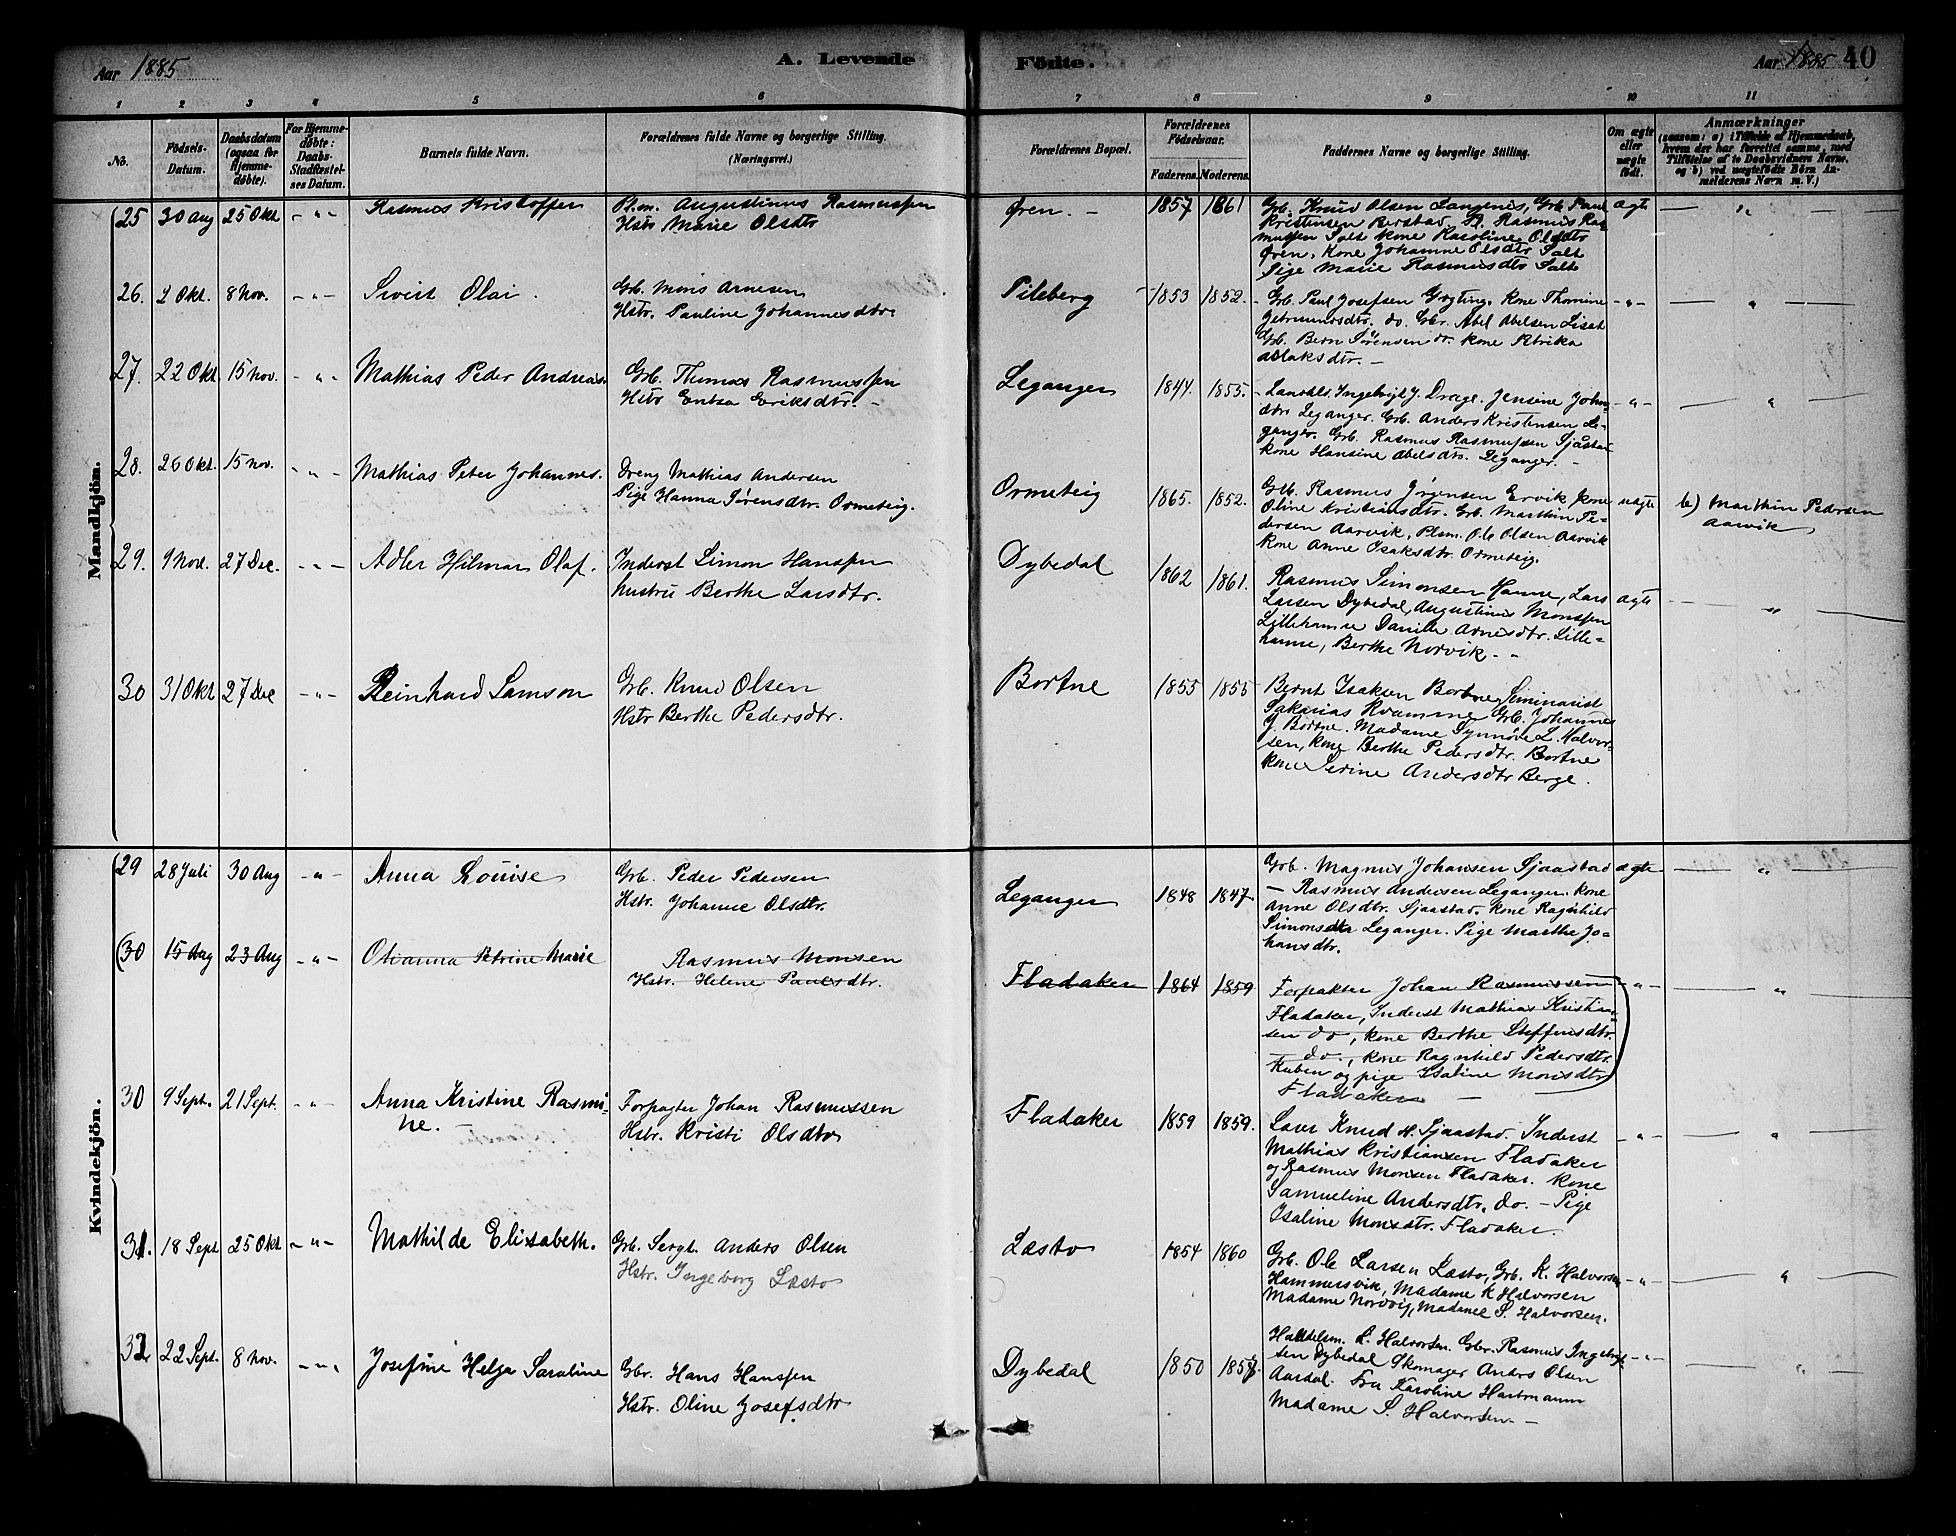 Aar 1885 A. Levende Fødte. Aar 1885 40
1 2 3 4 5 6 7 8 9 10 11
No.
Fødsels-
Datum.
Daabsdatum
(ogsaa for
Hjemme-
døbte).
For Hjemme-
døbte:
Daabs-
Stadfæstel-
ses Datum.
Barnets fulde Navn.
Forældrenes fulde Navne og borgerlige Stilling.
(Næringsvei.)
Forældrenes Bopæl.
Forældrenes
Fødselsaar.
Faderens. Moderens.
Faddernes Navne og borgerlige Stilling.
Om ægte
eller
uægte
født.
Anmærkninger
(saasom: a) i Tilfælde af Hjemmedaab,
hvem der har forrettet samme, med
Tilføielse af to Daabsvidners Navne.
og b) ved uægtefødte Børn An-
melderens Navn m. V.)
Mandkjön.
25 30 Aug 25 Okt - " - Rasmus Kristoffer
Pl.m. Augustinus Rasmussen
Hstr Marie Olsdtr
Øren. - 1857 1861
Grb. Knud Olsen Langenes, Grb Paul
Kristensen Berstad, Rasmus Ras-
mussen Salt kone Karoline Olsdtr
Øren. Kone Johanne Olsdtr Salt
Pige Marie Rasmusdtr Salt
ægte — " —
26. 2 Okt. 8 Nov. - " - Sivert Olai.
Grb. Mons Arnesen
Hstr. Pauline Johannesdtr.
Pileberg 1853 1852.
Grb. Paul Josefsen Grøting. Kone Thomine
do. Gbr. Abel Abelsen Liset
Grb. Bern Sørensen do. kone Petrika
Aslaksdtr. -
- " - — " —
27. 22 Okt 15 Nov. - " - Mathias Peder Andreas.
Grb. Thomas Rasmussen
Hstr Entse Eriksdtr. -
Leganger 1844. 1855.
Ingebrigt J. Drage. Jensine Johns-
dtr Leganger. Grb. Anders Kristensen Le-
ganger. Grb. Rasmus Rasmussen Sjåstad
kone Hansine Abelsdtr. Leganger. -
- " - — " —
28. 26 Okt. 15 Nov. - " - Mathias Peter Johannes.
Dreng Mathias Andersen
Pige Hanna Sørensdtr. Ormeteig.
Ormeteig 1865. 1852.
Grb. Rasmus Jørgensen Ervik kone
Oline Kristiansdtr. Grb. Marthin Pe-
dersen Aarvik, Plsm. Ole Olsen Aarvik
kone Anne Isaksdtr. Ormeteig.
uægte b) Marthin Pedersen
Aarvik
29. 9 Nov. 27 Dec. - " - Adler Hilmar Olaf.
Inderst Simon Hanssen
hustru Berthe Larsdtr.
Dybedal 1862 1861.
Rasmus Simonsen Hamne, Lars
Larsen Dybedal, Augustinus Monssen
Lillehamne Danille Arnesdtr. Lille-
hamne, Berthe Norvik - -
ægte — " —
30 31 Okt 27 Dec - " - Reinhard Samson
Grb. Knud Olsen
Hstr Berthe Pedersdtr.
Bortne 1855 1855
Bernt Isaksen Bortne, Seminarist
Sakarias Kvamme Grb. Johannes
J. Bortne. Madame Synnøve L. Halvor-
sen, kone Berthe Pedersdtr. Bortne
kone Serine Andersdtr Berge.
Kvindekjön.
29 28 Juli 30 Aug - " - Anna Louise
Grb. Peder Pedersen
Hstr. Johanne Olsdtr.
Leganger 1848 1847
Grb. Magnus Johansen Sjaastad
— Rasmus Andersen Leganger. kone
Anne Olsdtr. Sjaastad. kone Ragnhild
Simonsdtr Leganger. Pige Marthe Jo-
hansdtr.
ægte — " —
(30 15 Aug 23 Aug - " - Olianna Petrine Marie
Rasmus Monsen
Hstr. Helene Paulsdtr.
Fladaker 1864 1859
Forpakter Johan Rasmussen
Fladaker, Inderst Mathias Kristian-
sen do, kone Berthe Steffensdtr.
do., kone Ragnhild Pedersdtr.
Kuben og pige Isaline Monsdtr
Fladaker —
- " - — " —
30 9 Sept. 21 Sept. - " - Anna Kristine Rasmi-
ne. —
Forpagter Johan Rasmussen
Hstr. Kristi Olsdtr
Fladaker 1859 1859.
Knud M. Sjaastad. Inderst
Mathias Kristiansen Fladaker
og Rasmus Monsen Fladaker. Kone
Samueline Andersdtr. do. - Pige
Isaline Monsdtr. Fladaker.
- " - — " —
31. 18 Sept 25 Okt - " - Mathilde Elisabeth.
Grb. Sergt. Anders Olsen
Hstr. Ingeborg Læsto
Læsto 1854 1860
Grb. Ole Larsen Læsto, Grb. K. Halvorsen
Hammersvik, Madame K Halvorsen
Madame Nordvig, Madame S. Halvorsen.
- " - — " —
32 22 Sept. 8 Nov. - " - Josefine Helga Saraline
Gbr. Hans Hanssen
Hstr. Oline Josefsdtr
Dybedal 1850 1857.
Handelsm. L. Halvorsen. Gbr. Rasmus Ingebrigt-
sen Dybedal Skomager Anders Olsen
Aardal. Fru Karoline Hartmann
Madame S. Halvorsen. -
- " - — " —